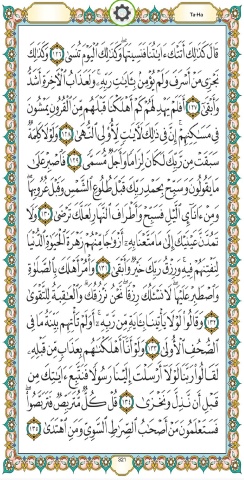 Ta-Ha
قَالَ كَذَٰلِكَ أَتَتْكَ ءَايَٰتُنَا فَنَسِيتَهَا ۖ وَكَذَٰلِكَ ٱلْيَوْمَ تُنسَىٰ ١٢٦ وَكَذَٰلِكَ
نَجْزِى مَنْ أَسْرَفَ وَلَمْ يُؤْمِنۢ بِـَٔايَٰتِ رَبِّهِۦ ۚ وَلَعَذَابُ ٱلْـَٔاخِرَةِ أَشَدُّ
وَأَبْقَىٰٓ ١٢٧ أَفَلَمْ يَهْدِ لَهُمْ كَمْ أَهْلَكْنَا قَبْلَهُم مِّنَ ٱلْقُرُونِ يَمْشُونَ
فِى مَسَٰكِنِهِمْ ۗ إِنَّ فِى ذَٰلِكَ لَـَٔايَٰتٍ لِّأُو۟لِى ٱلنُّهَىٰ ١٢٨ وَلَوْلَا كَلِمَةٌ
سَبَقَتْ مِن رَّبِّكَ لَكَانَ لِزَامًا وَأَجَلٌ مُّسَمًّى ١٢٩ فَٱصْبِرْ عَلَىٰ
مَا يَقُولُونَ وَسَبِّحْ بِحَمْدِ رَبِّكَ قَبْلَ طُلُوعِ ٱلشَّمْسِ وَقَبْلَ غُرُوبِهَا ۖ
وَمِنْ ءَانَآئِ ٱلَّيْلِ فَسَبِّحْ وَأَطْرَافَ ٱلنَّهَارِ لَعَلَّكَ تَرْضَىٰ ١٣٠ وَلَا
تَمُدَّنَّ عَيْنَيْكَ إِلَىٰ مَا مَتَّعْنَا بِهِۦٓ أَزْوَٰجًا مِّنْهُمْ زَهْرَةَ ٱلْحَيَوٰةِ ٱلدُّنْيَا
لِنَفْتِنَهُمْ فِيهِ ۚ وَرِزْقُ رَبِّكَ خَيْرٌ وَأَبْقَىٰ ١٣١ وَأْمُرْ أَهْلَكَ بِٱلصَّلَوٰةِ
وَٱصْطَبِرْ عَلَيْهَا ۖ لَا نَسْـَٔلُكَ رِزْقًا ۖ نَّحْنُ نَرْزُقُكَ ۗ وَٱلْعَٰقِبَةُ لِلتَّقْوَىٰ
١٣٢ وَقَالُوا۟ لَوْلَا يَأْتِينَا بِـَٔايَةٍ مِّن رَّبِّهِۦٓ ۚ أَوَلَمْ تَأْتِهِم بَيِّنَةُ مَا فِى
ٱلصُّحُفِ ٱلْأُولَىٰ ١٣٣ وَلَوْ أَنَّآ أَهْلَكْنَٰهُم بِعَذَابٍ مِّن قَبْلِهِۦ
لَقَالُوا۟ رَبَّنَا لَوْلَآ أَرْسَلْتَ إِلَيْنَا رَسُولًا فَنَتَّبِعَ ءَايَٰتِكَ مِن
قَبْلِ أَن نَّذِلَّ وَنَخْزَىٰ ١٣٤ قُلْ كُلٌّ مُّتَرَبِّصٌ فَتَرَبَّصُوا۟ ۖ
فَسَتَعْلَمُونَ مَنْ أَصْحَٰبُ ٱلصِّرَٰطِ ٱلسَّوِىِّ وَمَنِ ٱهْتَدَىٰ ١٣٥
321